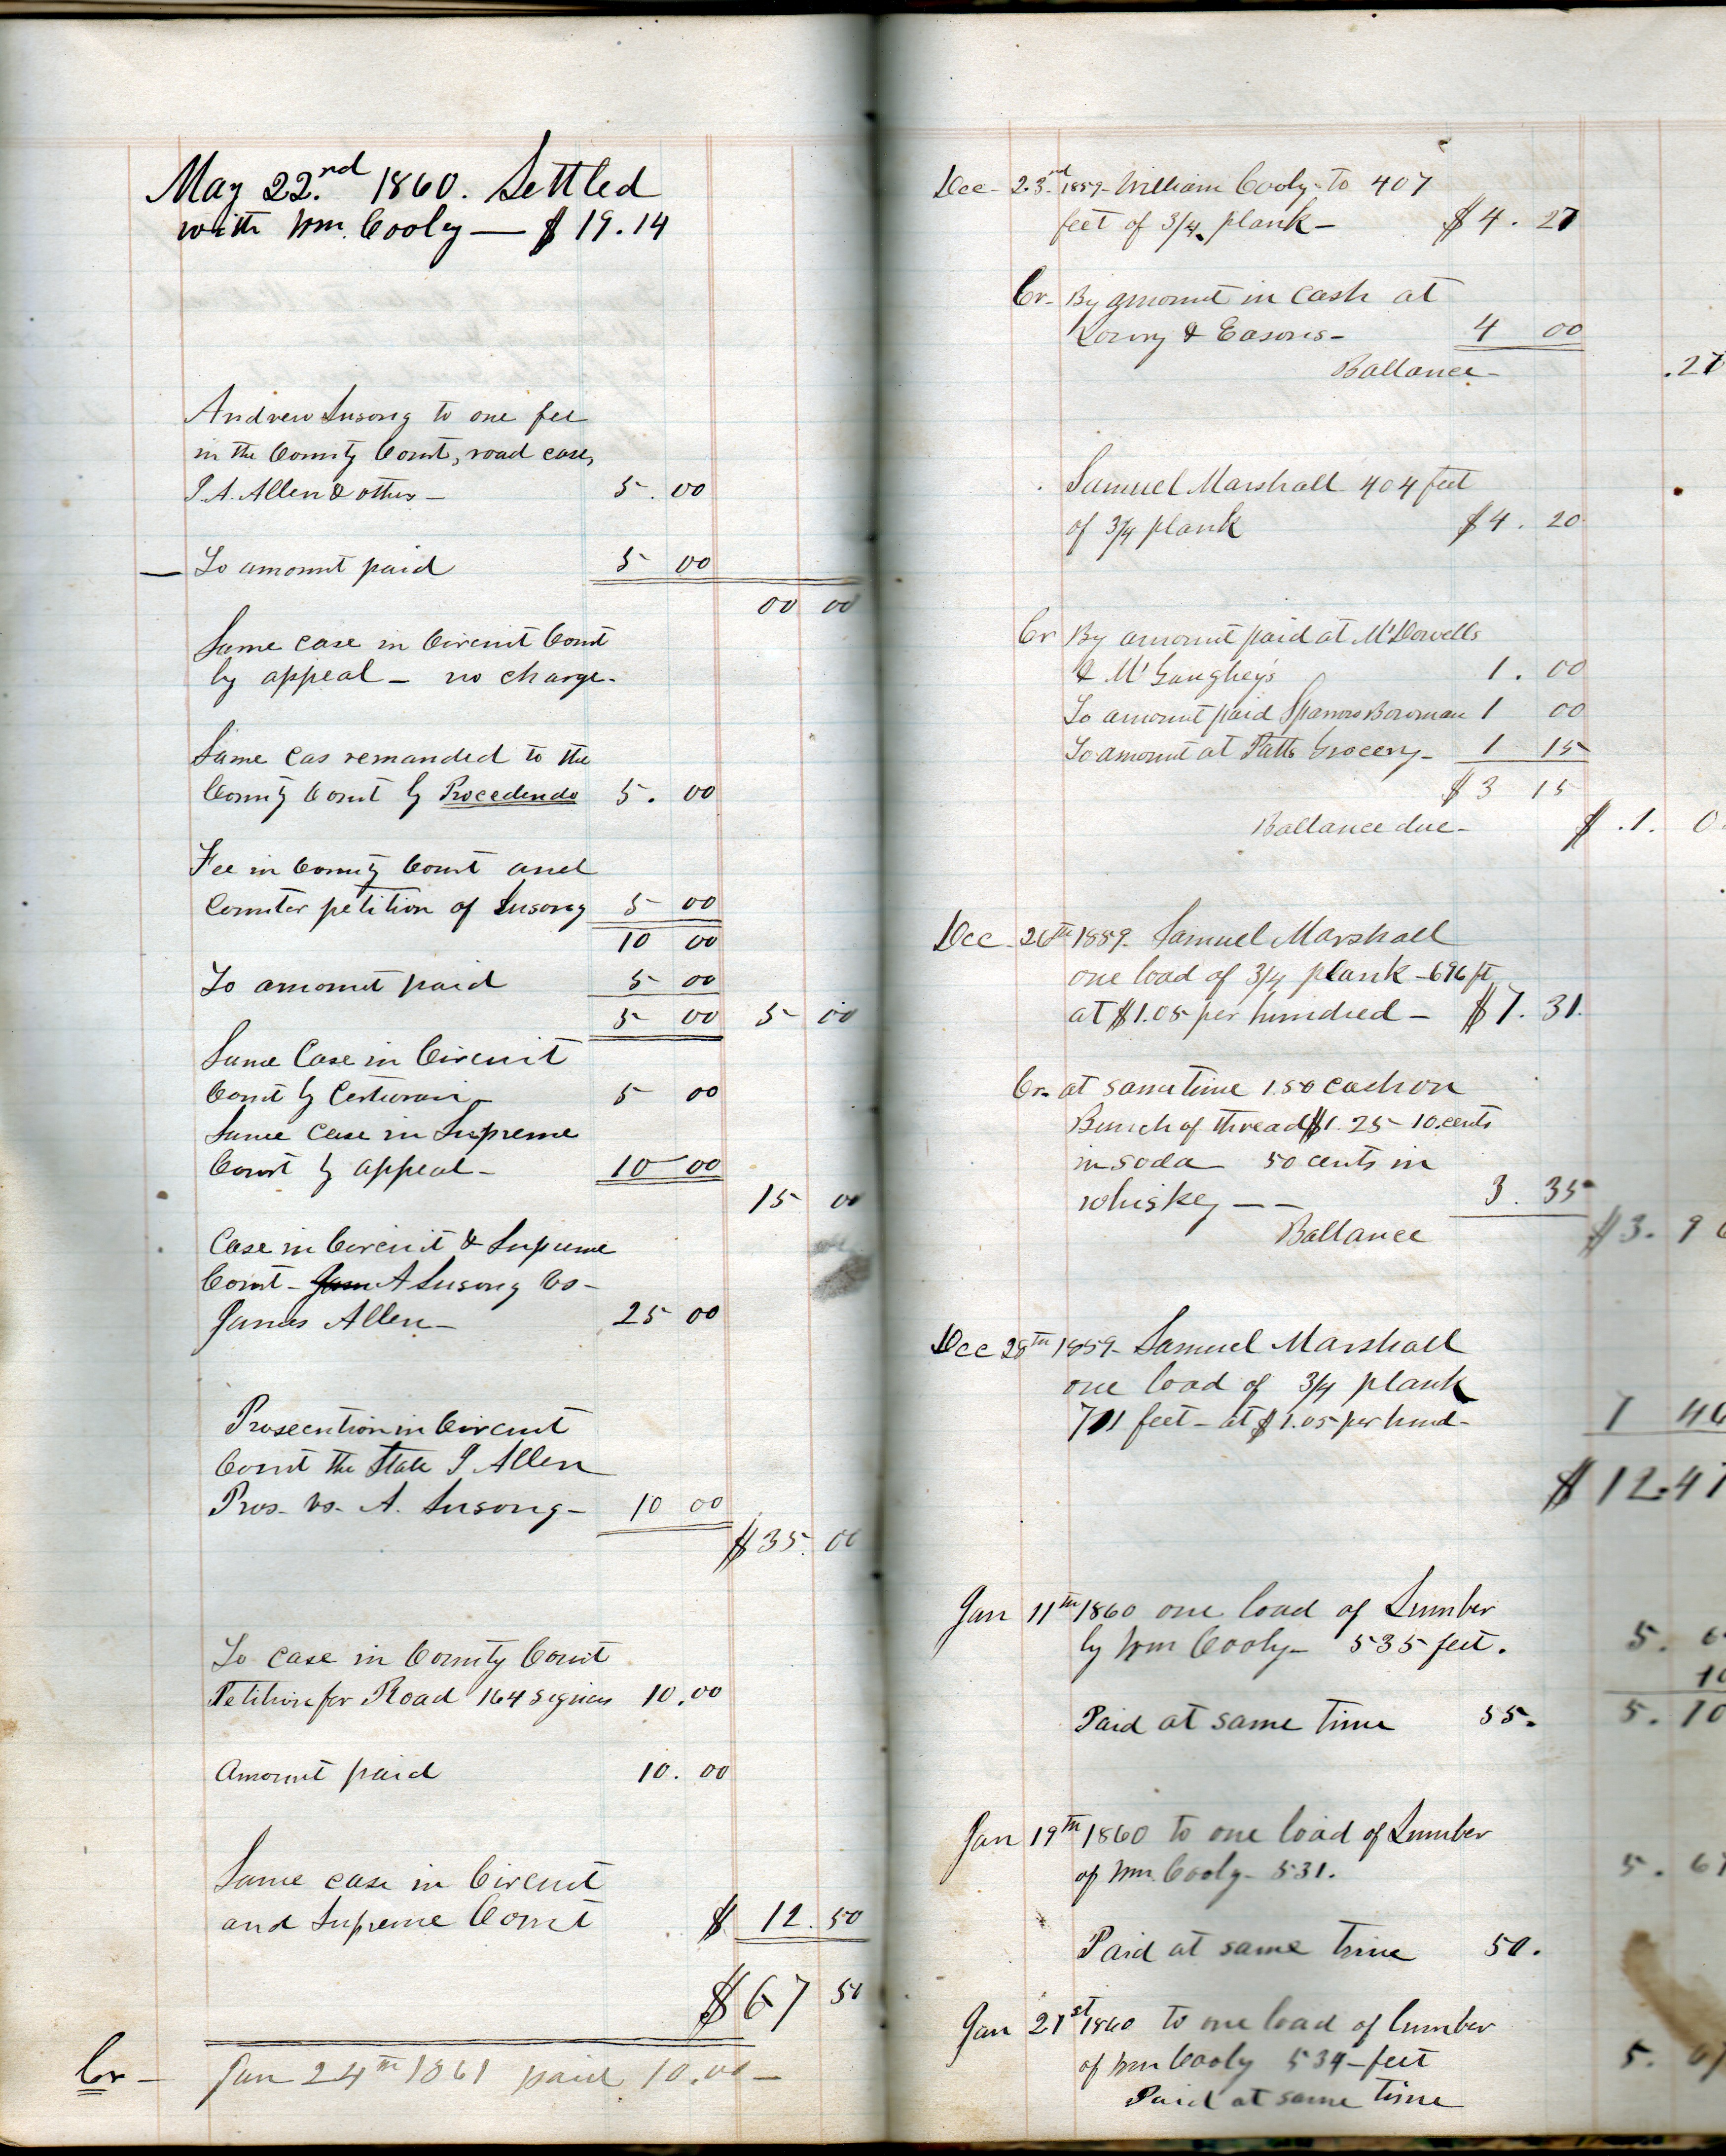 May 22.nd 1860. Settled
with Wm. Cooly — $ 19.14
Andrew Susong to one fee
in the County Court, road case,
J. A. Allen & others — 5.00
— To amount paid 5 00
00 00
Same case in Circuit Court
by appeal — no charge.
Same cas remanded to the
County Court by Procedendo 5.00
Fee in County Court and
Counter petition of Susong 5 00
10 00
To amount paid 5 00
5 00 5 00
Same Case in Circuit
Court by Certiorari — 5 00
Same case in Supreme
Court by appeal — 10 00
15 00
Case in Circuit & Supreme
Court — A Susong vs —
James Allen — 25 00
Prosecution in Circuit
Court the State J Allen
Pros. vs. A. Susong — 10 00
$ 35.00
To case in County Court
Petition for Road 164 signers 10.00
Amount paid 10.00
Same case in Circuit
and Supreme Court $ 12.50
$ 67 50
Cr — Jan 24th 1861 paid 10.00 —
Dec — 23rd 1859 — William Cooly — to 407
feet of 3/4 plank — $ 4.27
Cr — By amount in cash at
Lowry & Easons — 4 00
Ballance — .27
Samuel Marshall 404 feet
of 3/4 plank $ 4.20
Cr By amount paid at McDowells
& McGaughey's 1.00
To amount paid Bowman 1 00
To amount at Patts Grocery — 1 15
$ 3 15
Ballance due — $ .1. 0
Dec — 26th 1859 — Samuel Marshall
one load of 3/4 plank — 696 ft
at $1.05 per hundred — $ 7.31.
Cr — at same time 1.50 cash on
Bunch of thread $1.25 — 10.cents
in soda — 50 cents in
whiskey — — 3.35
Ballance $3.9
Dec 28th 1859 — Samuel Marshall
one load of 3/4 plank
711 feet — at $1.05 per hund — 7 46
$ 12.47
Jan 11th 1860 one load of Lumber
by Wm Cooly — 535 feet. 5.6
10
Paid at same time 55. 5.10
Jan 19th 1860 to one load of Lumber
of Wm. Cooly — 531. 5.67
Paid at same time 50.
Jan 21st 1860 to one load of lumber
of Wm Cooly 534 — feet 5.
Paid at same time